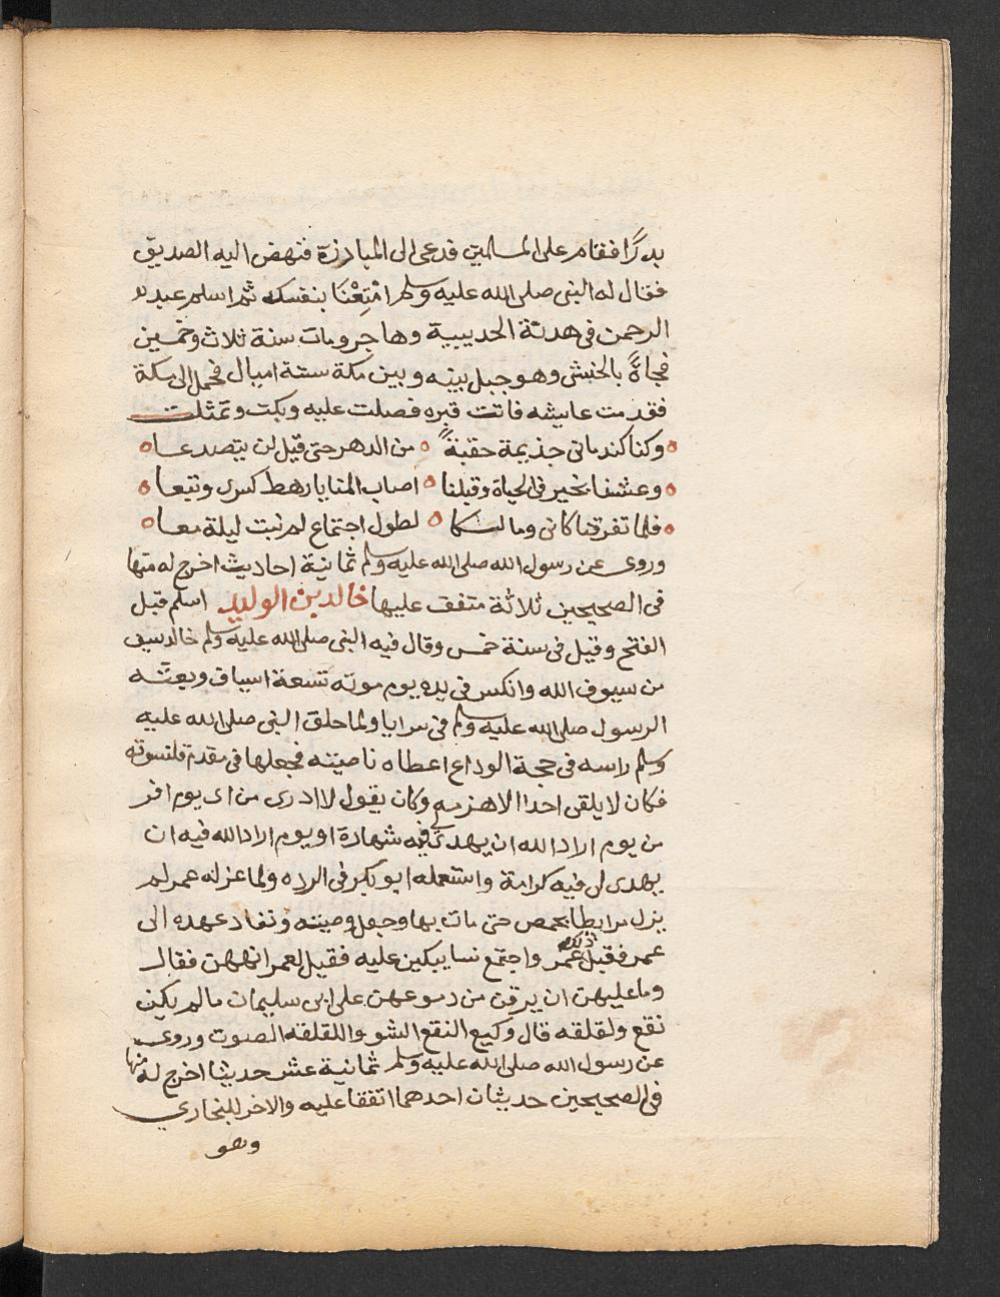 بدرًا فقام على المسلمين فدعى الى المبارزة فنهض اليه الصديق
فقال له النبى صلى الله عليه وسلم امْتِعْنَا بنفسك ثم اسلم عبد
الرحمن فى هدنة الحديبية وهاجر ومات سنة ثلاث وخمسين
فجاةً بالحبشى وهو جبل بينه وبين مكة ستة اميال فحمل الى مكة
فقدمت عايشه فاتت قبره فصلت عليه وبكت وتمثلت
وكنا كندمانى جذيمة حقبةً من الدهر حتى قيل لن يتصدعا
وعشنا بخير فى الحياة وقبلنا اصاب المنايا رهط كسرى وتبعا
فلما تفرقنا كانى ومالكا لطول اجتماع لم نبت ليلة معا
وروى عن رسول الله صلى الله عليه وسلم ثمانية احاديث اخرج له منها
فى الصحيحين ثلاثة متفق عليها خالد بن الوليد اسلم قبل
الفتح وقيل فى سنة خمس وقال فيه النبى صلى الله عليه وسلم خالد سيف
من سيوف الله وانكسر فى يده يوم موته تسعة اسياف وبعثه
الرسول صلى الله عليه وسلم فى سرايا ولما حلق النبى صلى الله عليه
وسلم راسه فى حجة الوداع اعطاه ناصيته فجعلها فى مقدم قلنسوته
فكان لا يلقى احدا الا هزمه وكان يقول لا ادرى من اى يوم افر
من يوم اراد الله ان يهدى لى فيه شهادة او يوم اراد الله فيه ان
يهدى لى فيه كرامة واستعمله ابو بكر فى الرده ولما عزله عمر لم
يزل مرابطا بحمص حتى مات بها وجعل وصيته ونفاد عهده الى
عمر فقبل ذلك عمر واجتمع نسا يبكين عليه فقيل لعمر انههن فقال
وما عليهن ان يرقن من دموعهن على ابى سليمان ما لم يكن
نقع ولقلقه قال وكيع النقع الشق واللقلقه الصوت وروى
عن رسول الله صلى الله عليه وسلم ثمانية عشر حديثا اخرج له منها
فى الصحيحين حديثان احدهما اتفقا عليه والاخر للبخاري
وهو